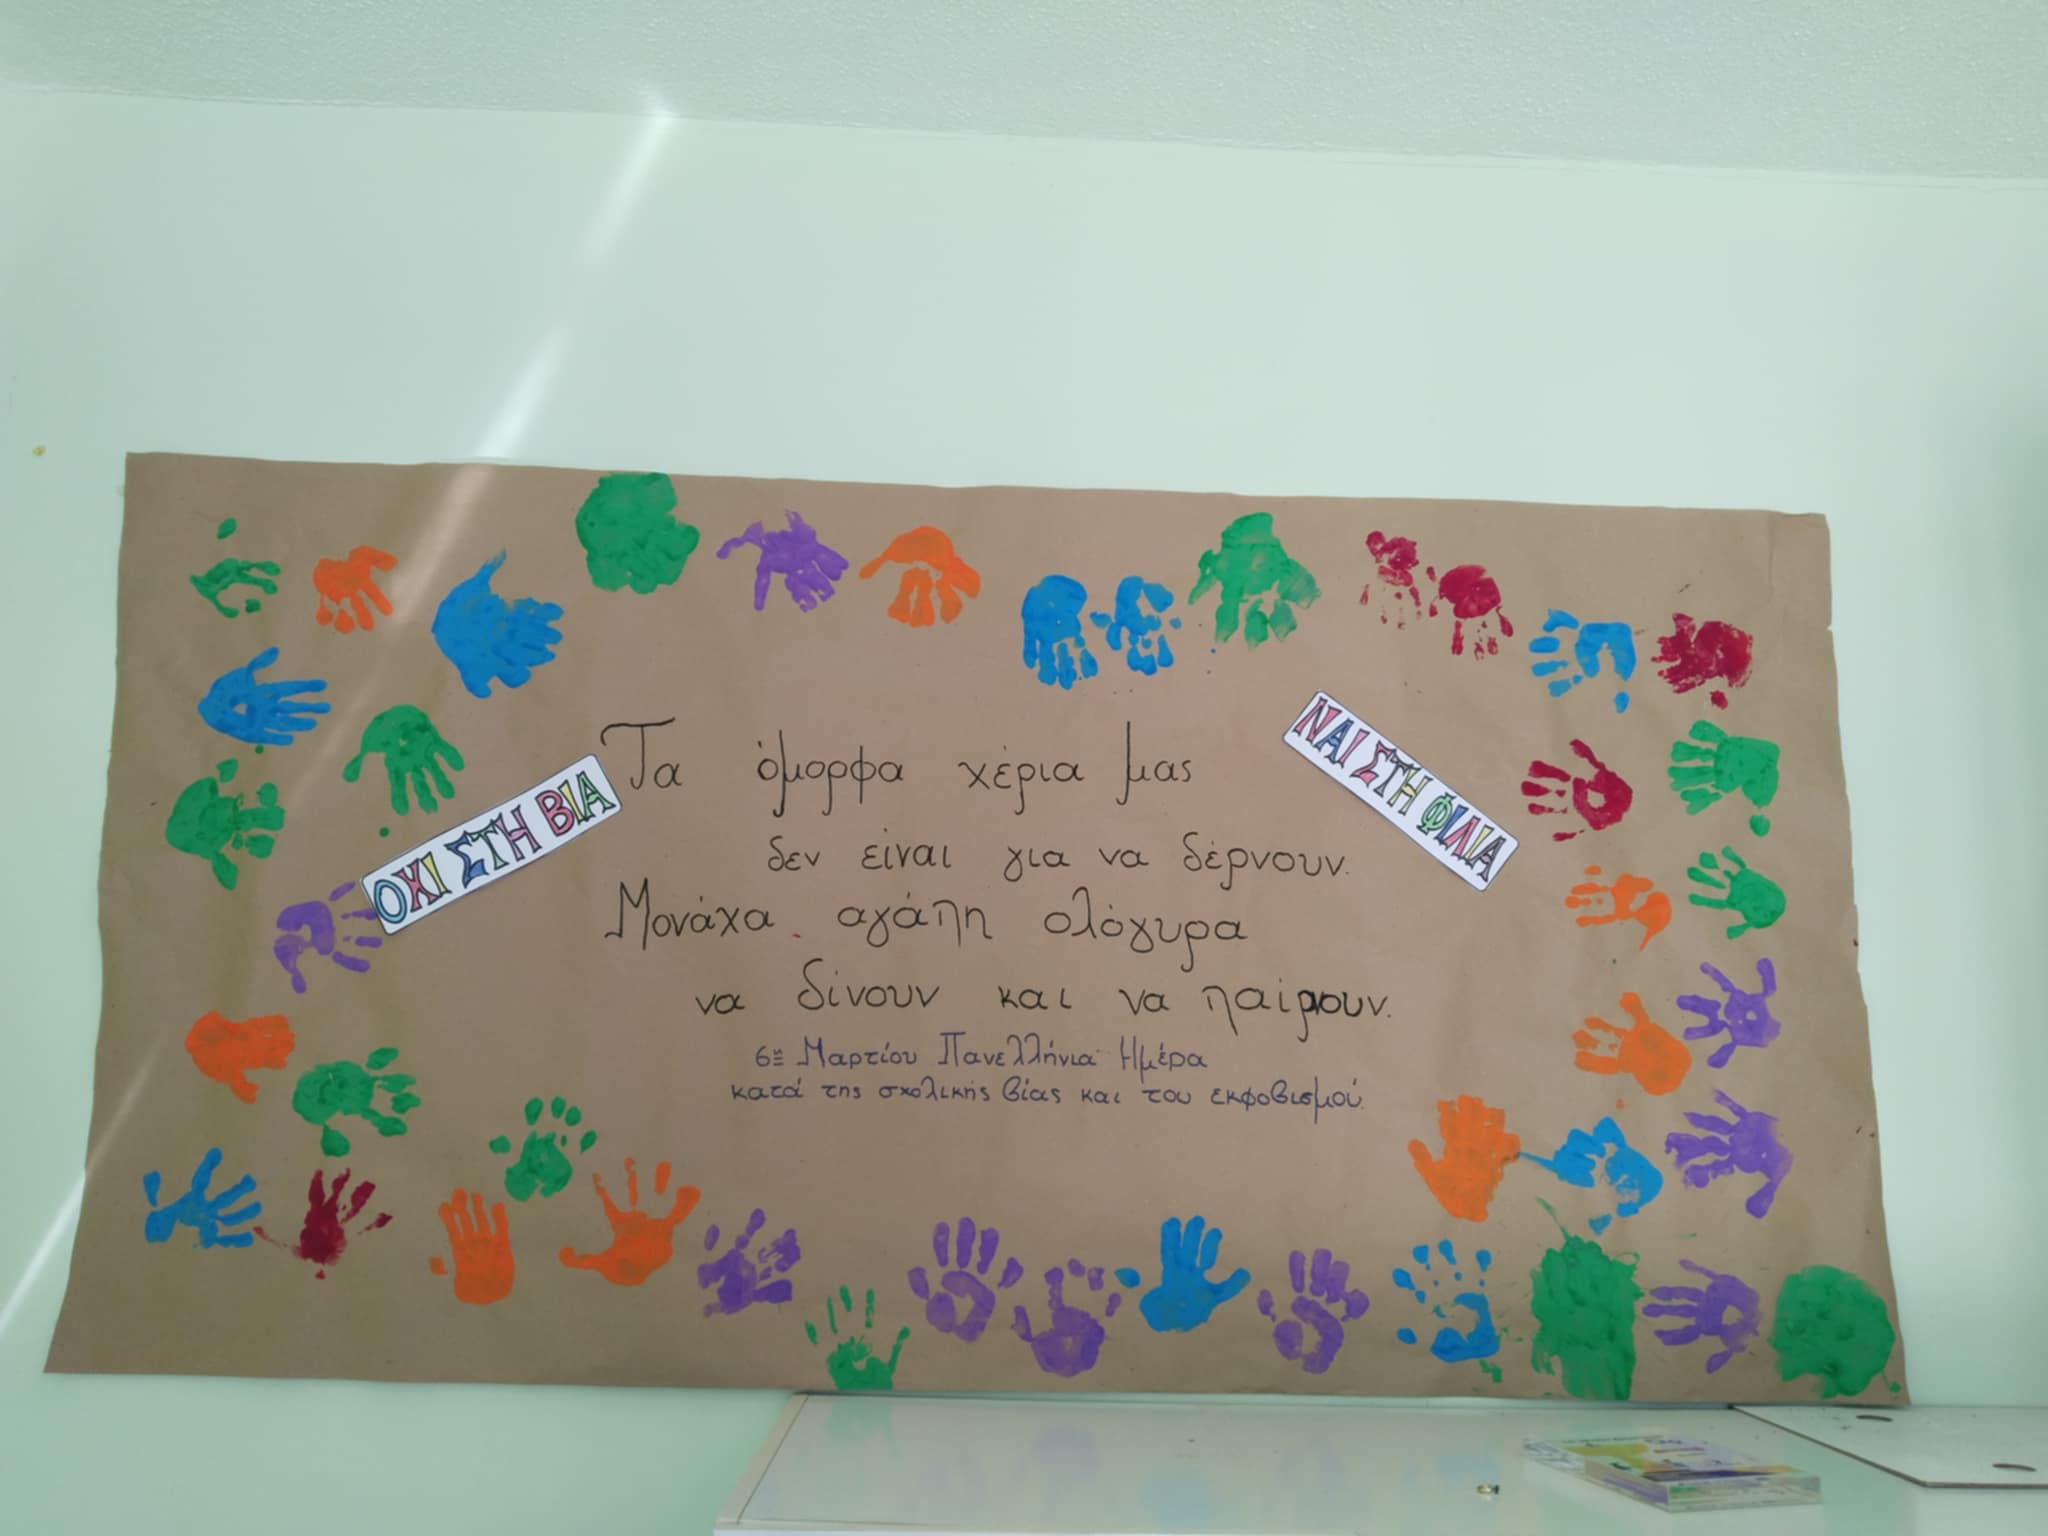 ΟΧΙ ΣΤΗ ΒΙΑ
ΝΑΙ ΣΤΗ ΦΙΛΙΑ
Τα όμορφα χέρια μας
δεν είναι για να δέρνουν.
Μονάχα αγάπη ολόγυρα
να δίνουν και να παίρνουν.
6η Μαρτίου Πανελλήνια Ημέρα
κατά της σχολικής βίας και του εκφοβισμού.